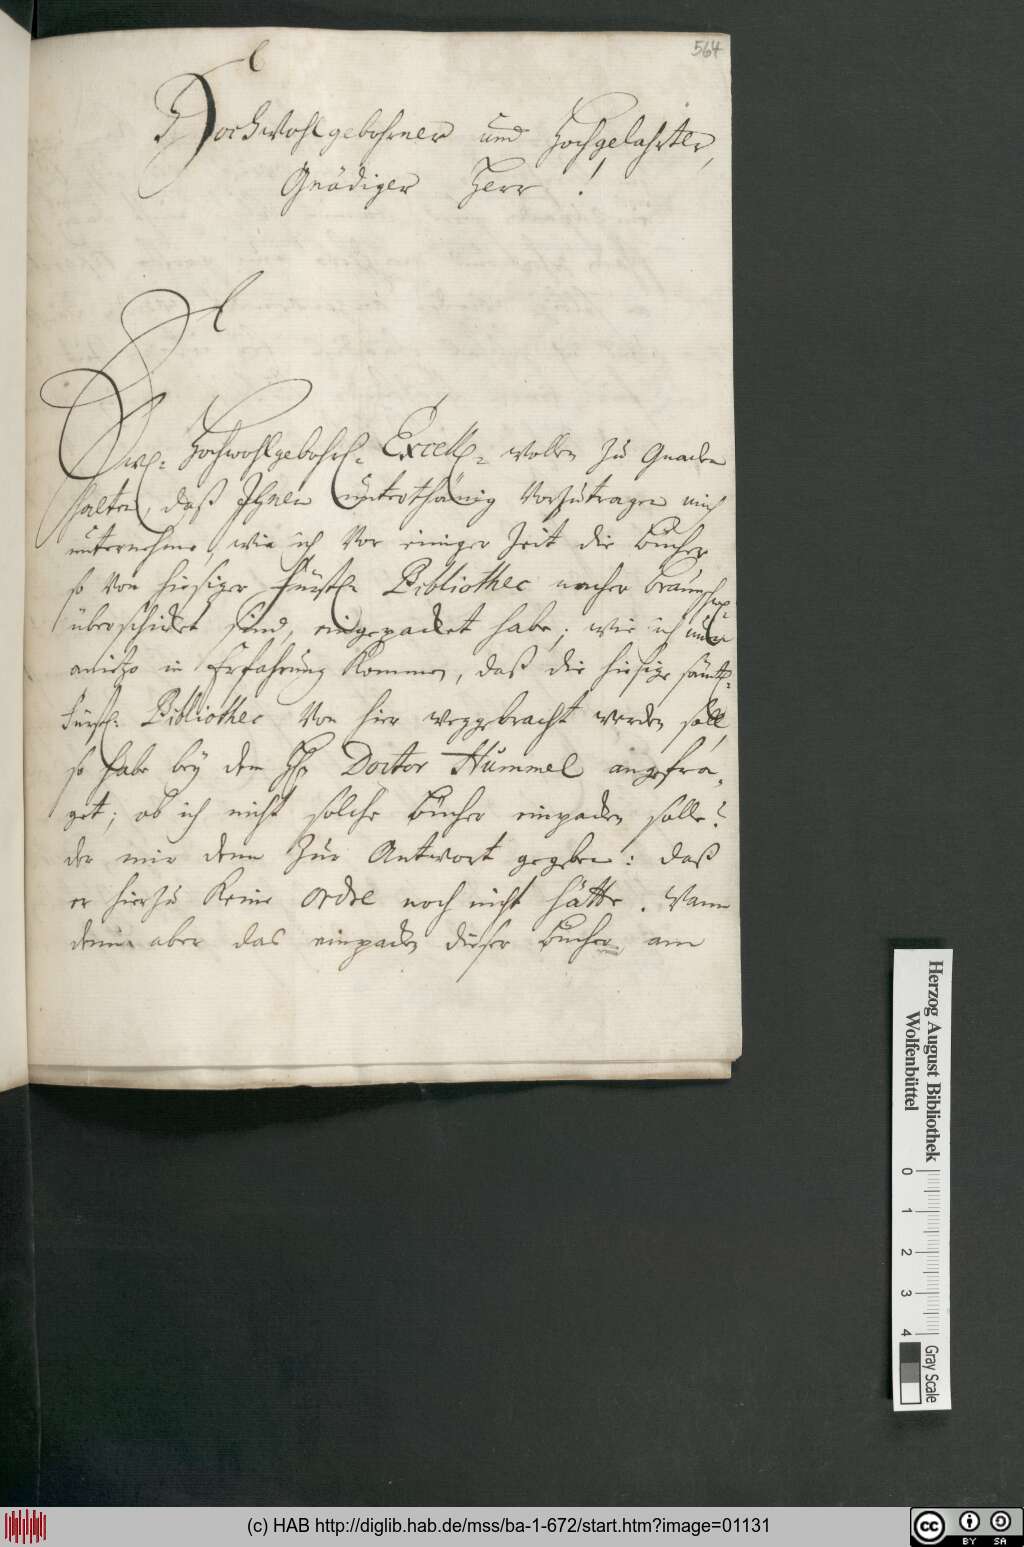 564
HochWohlgebohrner und Hochgelahrter,
Gnädiger Herr!
Ew: Hochwohlgebohr: Excell: wollen zu Gnaden
halten, daß Ihnen unterthänig Vorzutragen mich
unternehme, wie ich Vor einiger Zeit die Bücher
so von hiesiger Fürstl: Bibliothec nacher Braunschw:
überschicket sind, eingepacket habe; wie ich nun
anietzo in Erfahrung Kommen, daß die hiesige sämtl:
Fürstl: Bibliothec Von hier weggebracht werden soll,
so habe bey dem H. Doctor Hummel angefra-
get; ob ich nicht solche Bücher einpacken solle?
der mir denn Zur Antwort gegeben: daß
er hierzu Keine ordre noch nicht hätte. Wann
denn aber das einpacken dieser Bücher am
Herzog August Bibliothek
Wolfenbüttel
0 1 2 3 4
Gray Scale
(c) HAB http://diglib.hab.de/mss/ba-1-672/start.htm?image=01131
cc BY SA